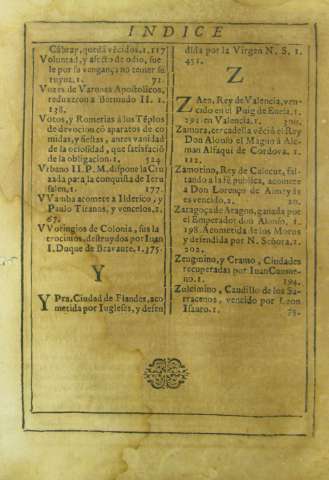 INDICE
Cabrar, quedā vēcidos. 1. 117
Voluntad, y afecto de odio, sue
le por su venganç, no temer su
ruyna. 1. 71.
Vozes de Varones Apostolicos,
reduxeron a Bermudo II. 1.
138.
Votos, y Romerias a los Tēplos
de devocion cō aparatos de co
midas, y fiestas, antes vanidad
de la ociosidad, que satisfació
de la obligacion. 1. 524.
Vrbano II. P. M. dispone la Cru
zada para la conquista de Ieru
salen. 1. 177.
VVamba acomete a Ilderico, y
Paulo Tiranos, y vencelos. 1.
67.
VVoringios de Colonia, sus la
trocinios, destruydos por Iuan
I. Duque de Bravante. 1. 375.
Y
YPra, Ciudad de Flandes, aco
metida por Ingleses, y defen
dida por la Virgen N. S. 1.
451.
Z
ZAen, Rey de Valencia, ven-
cido en el Puig de Enesa. 1.
291 en Valencia. 1.
Zamora, cercadella vēciò el Rey
Don Alonso el Magno a Ale
man Alfaqui de Cordova. 1.
122.
Zamorino, Rey de Calecut, fal-
tando a la fè publica, acomete
a Don Lorenço de Almeyda
es vencido. 2. 20.
Zaragoça de Aragon, ganada por
el Emperador don Alonso. 1.
198. Acometida de los Moros
y defendida por N. Señora. 1.
202.
Zeugmino, y Cramo, Ciudades
recuperadas por Iuan Comne-
no. 1. 194.
Zuleimino, Caudillo de los Sa-
rracenos, vencido por Leon
Isauro. 1. 75.